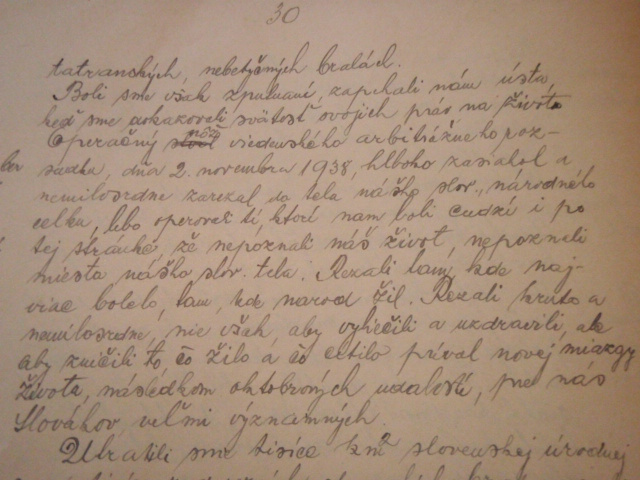 30
tatranských, nebetyčných bralách.
Boli sme však spútaní, zapchali nám ústa,
keď sme dokazovali svätosť svojich práv na života
nôž
Operačný stôl viedenského arbitrážneho roz-
sudku, dňa 2. novembra 1938, hlboko zasiahol a
nemilosrdne zarezal do tela nášho slov., národného
celku, lebo operovali tí, ktorí nám boli cudzí i po
tej stránke že nepoznali náš život, nepoznali
miesta nášho slov. tela. Rezali tam, kde naj-
viac bolelo, tam, kde národ žil. Rezali kruto a
nemilosrdne, nie však, aby vyliečili a uzdravili, ale
aby zničili to, čo žilo a čo cítilo príval novej miazgy
života, následkom októbrových udalostí, pre nás
Slovákov, veľmi významných.
Utratili sme tisíce km² slovenskej úrodnej